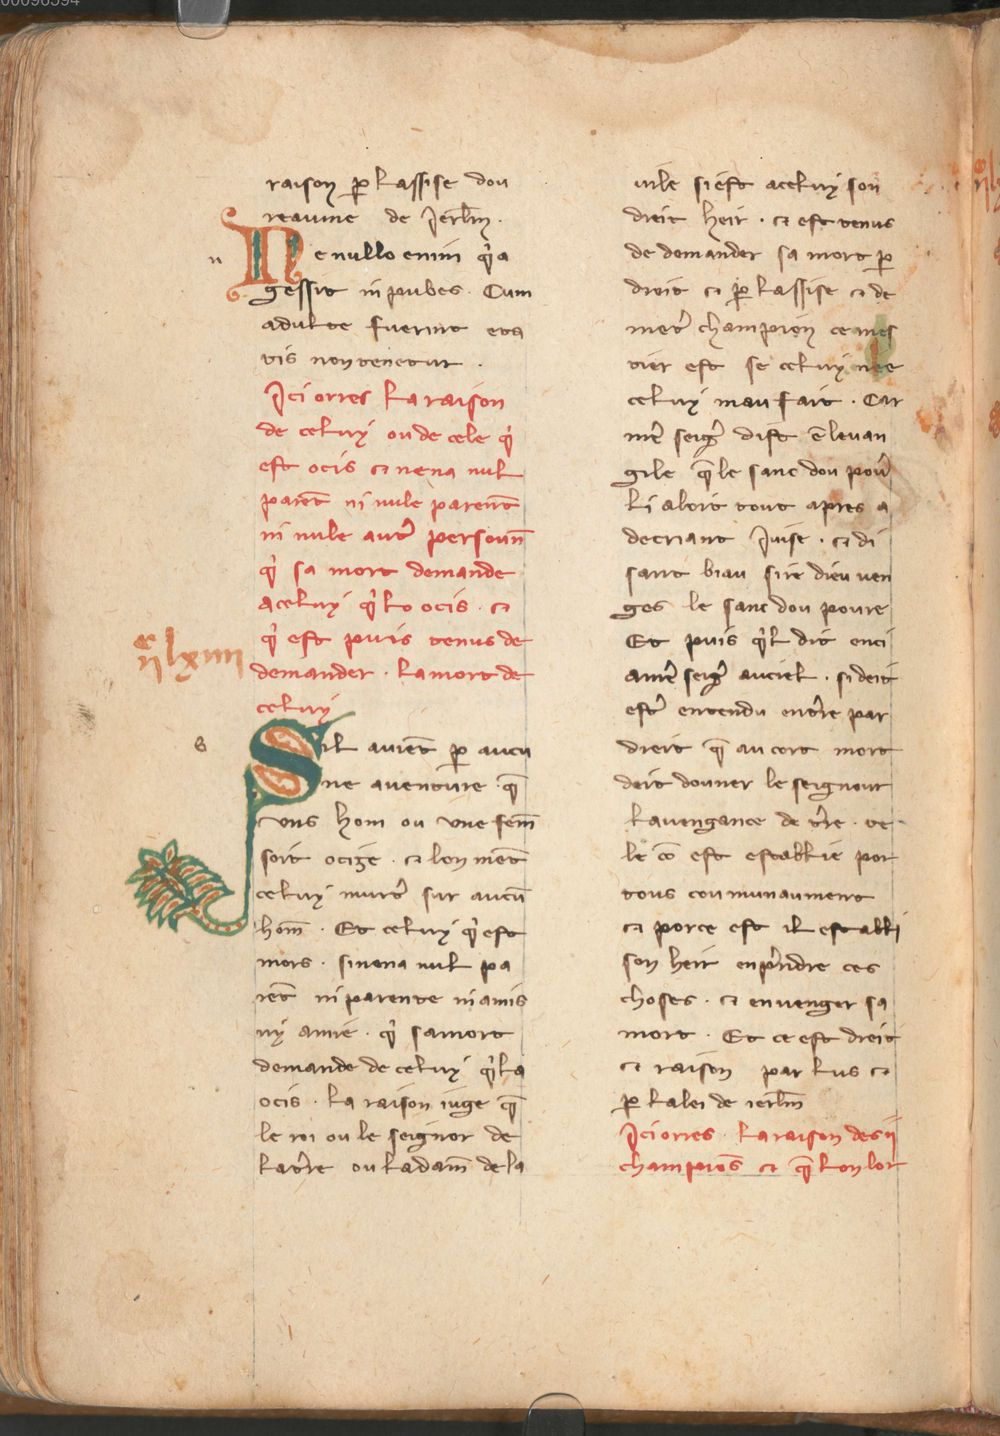 raison ꝑ lassise dou
reaume de Jerlm̄.
n
Ne nullo enim q̇ a
gessit in pubes. Cum
adulte fuerint eta
tis non tenetur.
Ici orres la raison
de celuy ou de cele q̇
est ocis ⁊ nena nul
parēt ni nule parent̄
ni nule autr̄ personn̄
q̇ sa mort demande
a celuy q̇ lo ocis. ⁊
q̇ est puis venus de
demander. la mort de
celuy
s
Sil auiēt ꝑ aucu
ne auenture. q̄
vns hom ou vne fem̄
soit ocize. ⁊ lon mēt
celuy murtr̄ sur aucū
hom̄. Et celuy q̇ est
mors. sinena nul pa
rēt ni parente ni amis
ny amie. q̇ sa mort
demande de celuy q̇ la
ocis. la raison iuge q̄
le roi ou le seignor de
la tr̄re ou la dam̄ de la
vile si est a celuy son
dreit heir. ⁊ est tenus
de demander sa mort ꝑ
droit ⁊ ꝑ lassise ⁊ de
metr̄ champion ce mes
tier est se celuy nee
celuy mau fait. Car
nr̄e seigr̄ dist ē leuan
gile q̄ le sanc dou pour̄
li aloit tout apres a
decriant Juise. ⁊ di
sant biau sire dieu ven
ges le sanc dou poure
Et puis q̇l dit enci
a nr̄e seigr̄ au ciel. si deit
estr̄ entendu entr̄e par
dreit q̄ au cort mort
doit douner le seignour
la uengance de tr̄re. te
le cō est establie por
tous coumunaument
⁊ por ce est il establi
son heir en pr̄ndre ces
choses. ⁊ en uenger sa
mort. Et ce est dreit
⁊ raison par lus ⁊
ꝑ la lei de ierlm̄
Ici orres la raison des ii
champiōs ⁊ q̄ lon lor